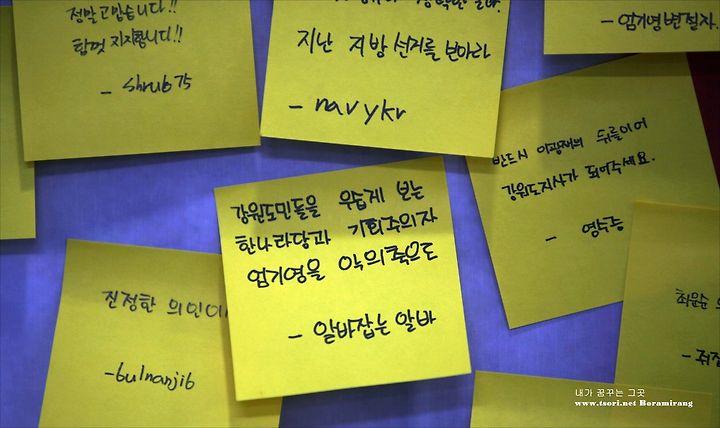 정말 고맙습니다!!
힘껏 지지합니다!!
- shrub75
지난 지방선거를 보아라
- navykr
- 엄기영변절자
반드시 이광재의 뒤를이어
강원도지사가 되어주세요.
- 영수능
강원도민들을 우습게 보는
한나라당과 기회주의자
엄기영을 악의축으로
- 알바잡는 알바
진정한 의인이
-bulnanjib
최문순 의
- 쥐잡
내가 꿈꾸는 그곳
www.tsori.net Boramirang